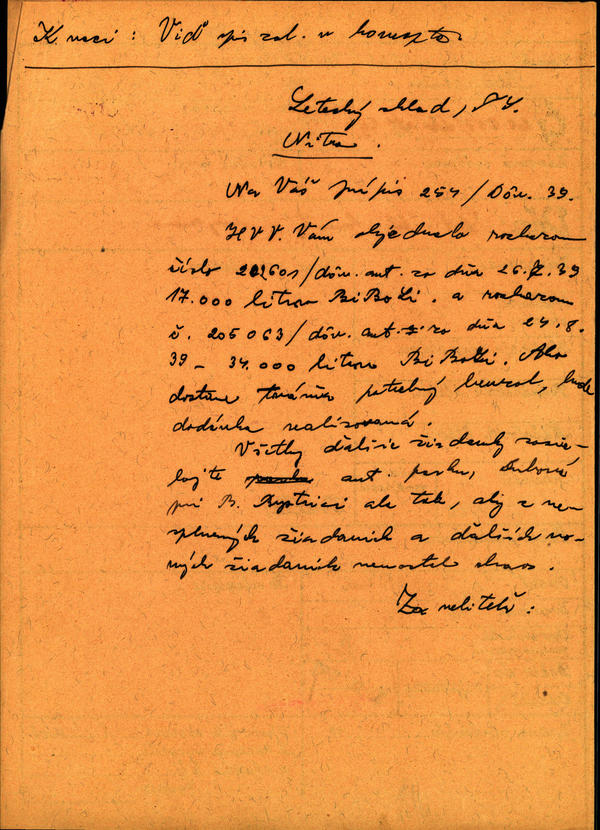 K veci: Viď spis zal. v koncepte.
Letecký sklad,
Nitra.
Na Váš prípis 254/Dôv. 39.
HVV. Vám objednalo rozkazom
číslo 202601/dôv. aut. zo dňa 26.7.39
17.000 litrov BiBoLi. a rozkazom
č. 205063/dôv. aut. zo dňa 24.8.
39 - 34.000 litrov BiBoLi. Ako
dostane továreň potrebný benzol, bude
dodávka realizovaná.
Všetky ďalšie žiadanky zasie-
lajte aut. parku, Dubová
pri B. Bystrici ale tak, aby z ne-
splnených žiadaniek a ďalších no-
vých žiadaniek nenastal chaos.
Za veliteľa: